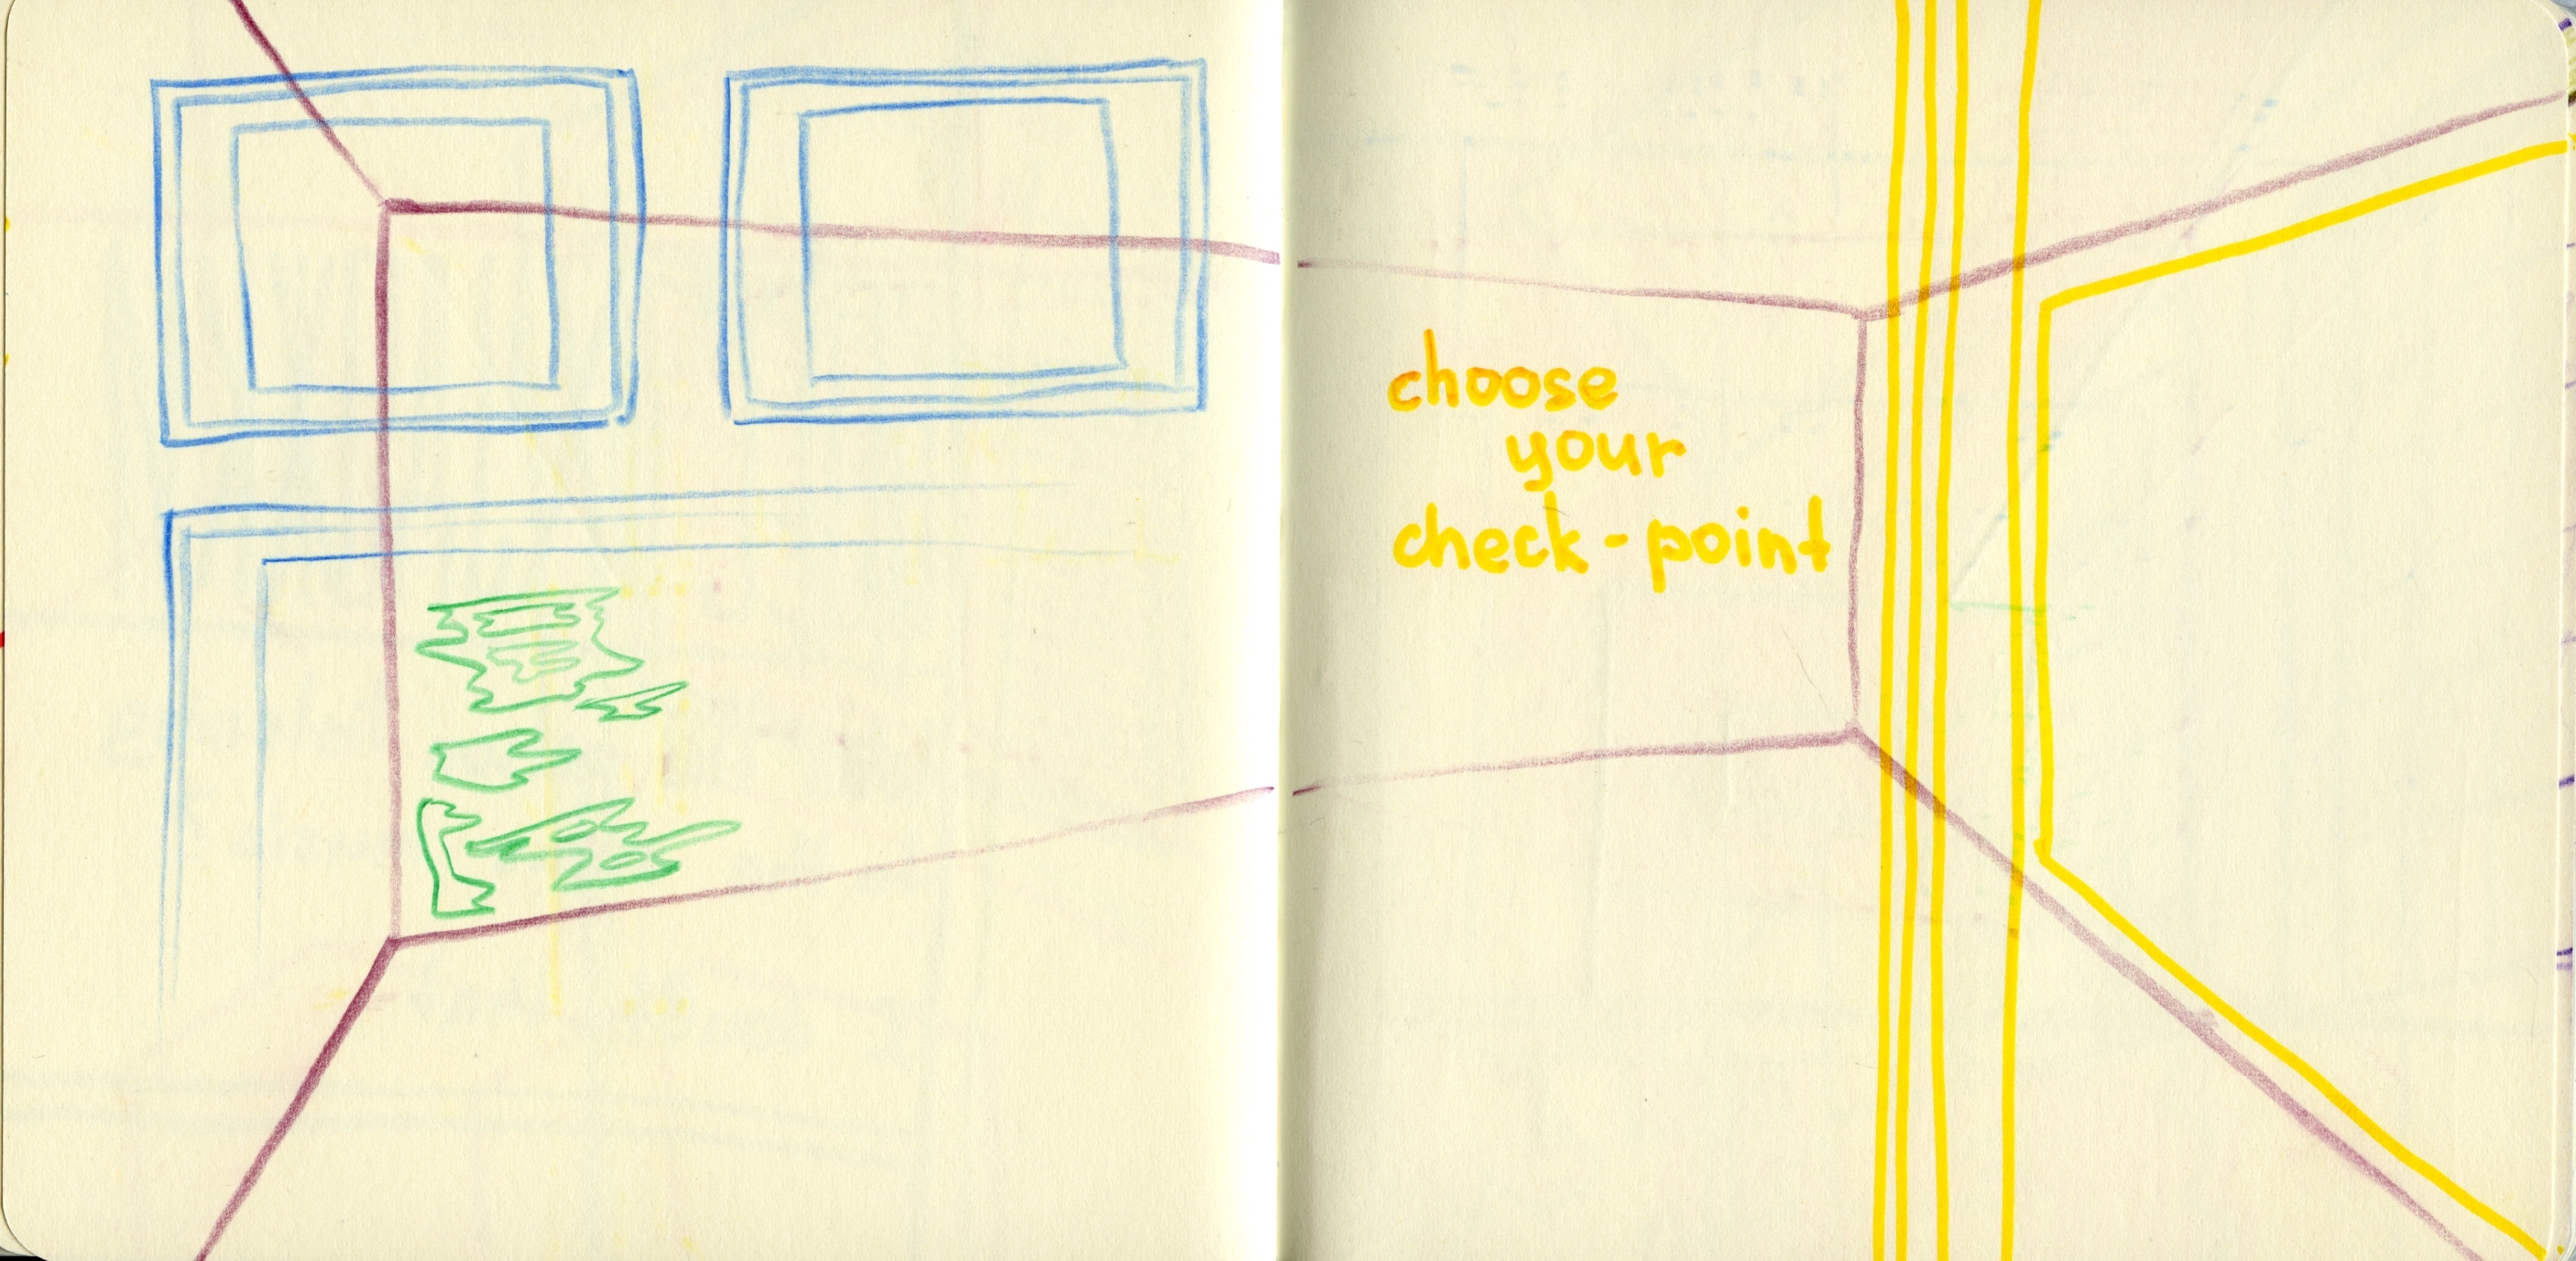 choose
your
check-point